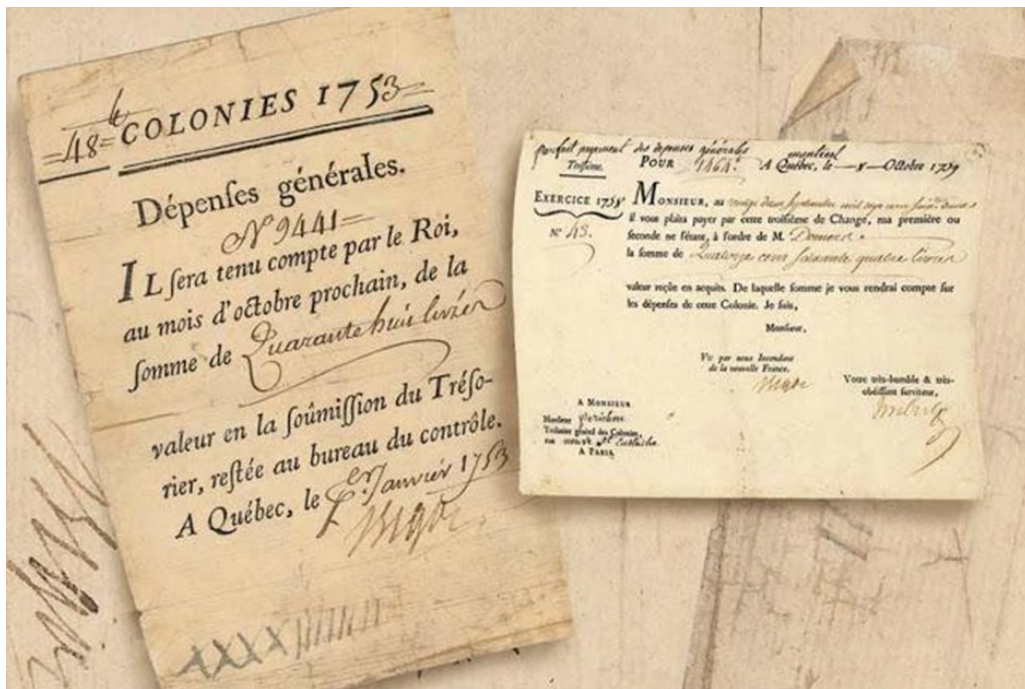 48 ⁿ COLONIES 1753
Dépenſes générales.
N° 9441
IL ſera tenu compte par le Roi,
au mois d'octobre prochain, de la
ſomme de Quarante huit livres
valeur en la ſoûmiſſion du Tréſo-
rier, reſtée au bureau du contrôle.
A Québec, le 1er Janvier 1753
Bigot
parfait payement des depenses générales montreal
Troiſieme. POUR 1464 A Québec, le 8 Octobre 1759
EXERCICE 1759 MONSIEUR, au
il vous plaira payer par cette troiſième de Change, ma première ou
N° 43. ſeconde ne l'étant, à l'ordre de M.
la ſomme de Quatorze cent ſoixante quatre livres
valeur reçûe en acquits. De laquelle ſomme je vous rendrai compte ſur
les dépenſes de cette Colonie. Je ſuis,
Monſieur,
Vû par nous Intendant
de la nouvelle France.
Bigot
Votre très-humble & très-
obéiſſant ſerviteur,
Imbert
A MONSIEUR
Monſieur Perichon
Tréſorier général des Colonies,
A PARIS.